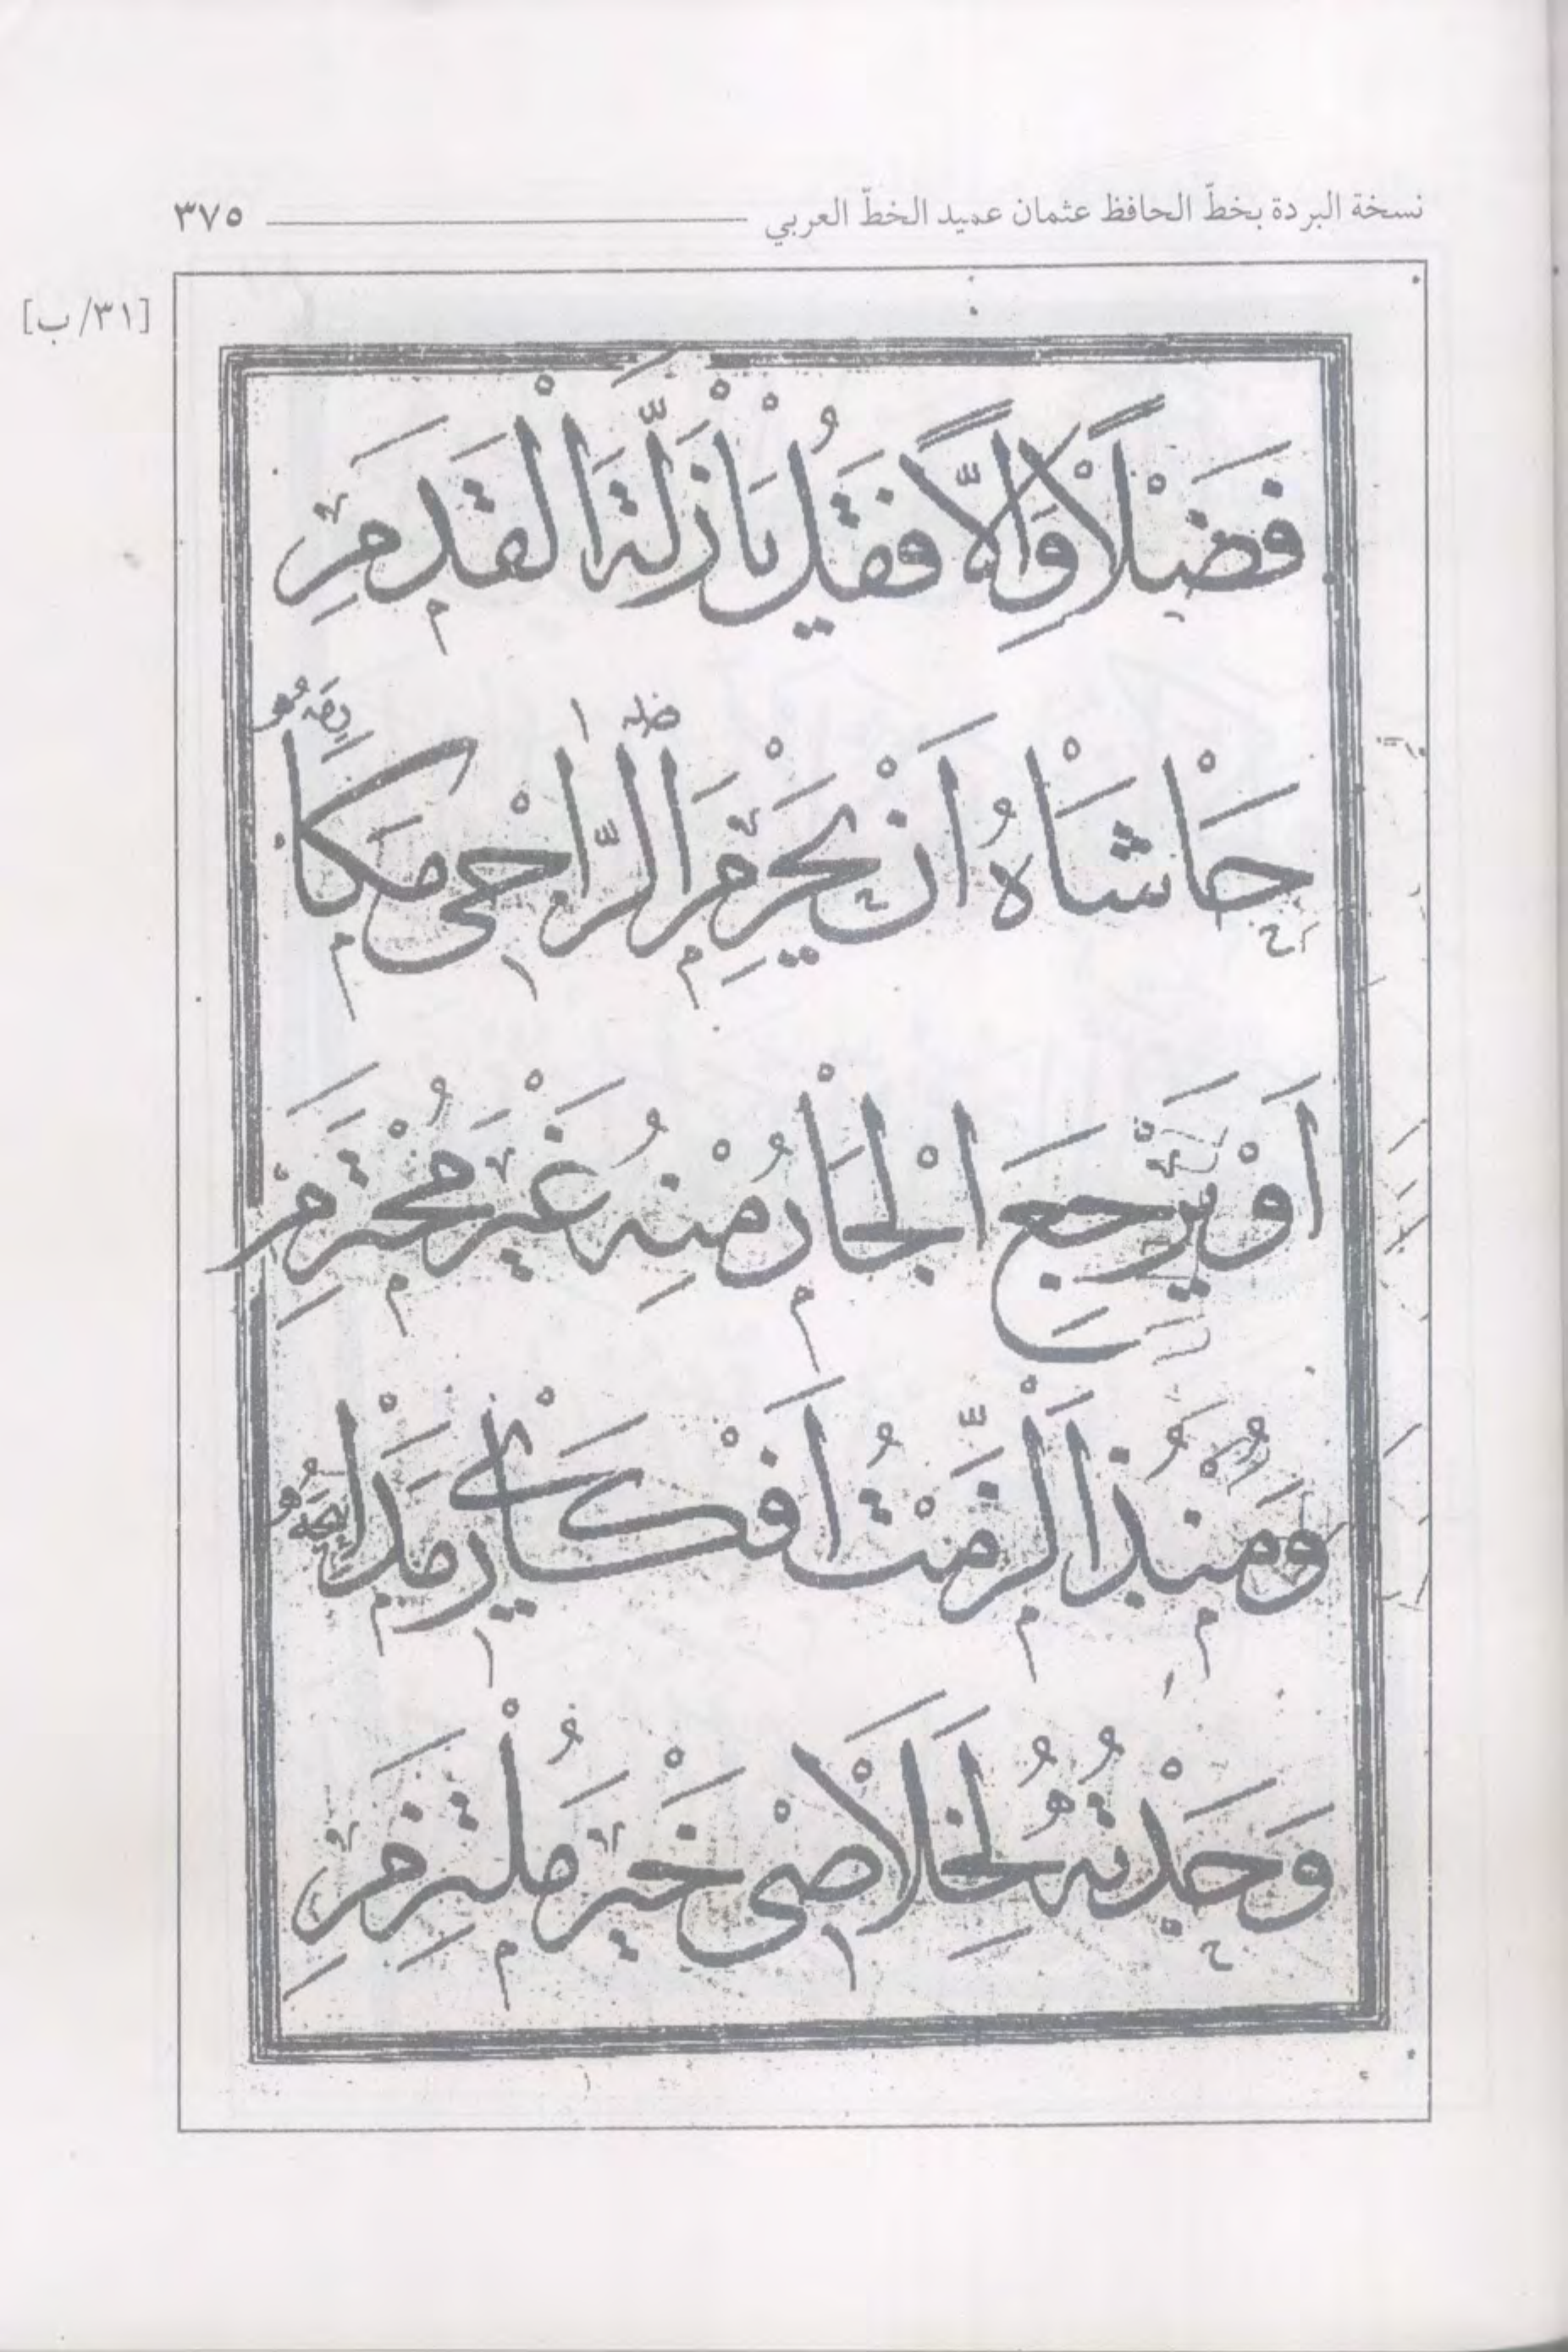 نسخة البردة بخطّ الحافظ عثمان عميد الخطّ العربي ٣٧٥
[٣١/ب]
فَضْلًا وَاِلَّا فَقُلْ يَا زَلَّةَ الْقَدَمِ
حَاشَاهُ اَنْ يَحْرِمَ الرَّاجِى مَكَا
اَوْ يَرْجِعَ الْجَارُ مِنْهُ غَيْرَ مُحْتَرَمِ
وَمُنْذُ اَلْزَمْتُ اَفْكَارِى مَدَا
وَجَدْتُهُ لِخَلَاصِى خَيْرَ مُلْتَزِمِ